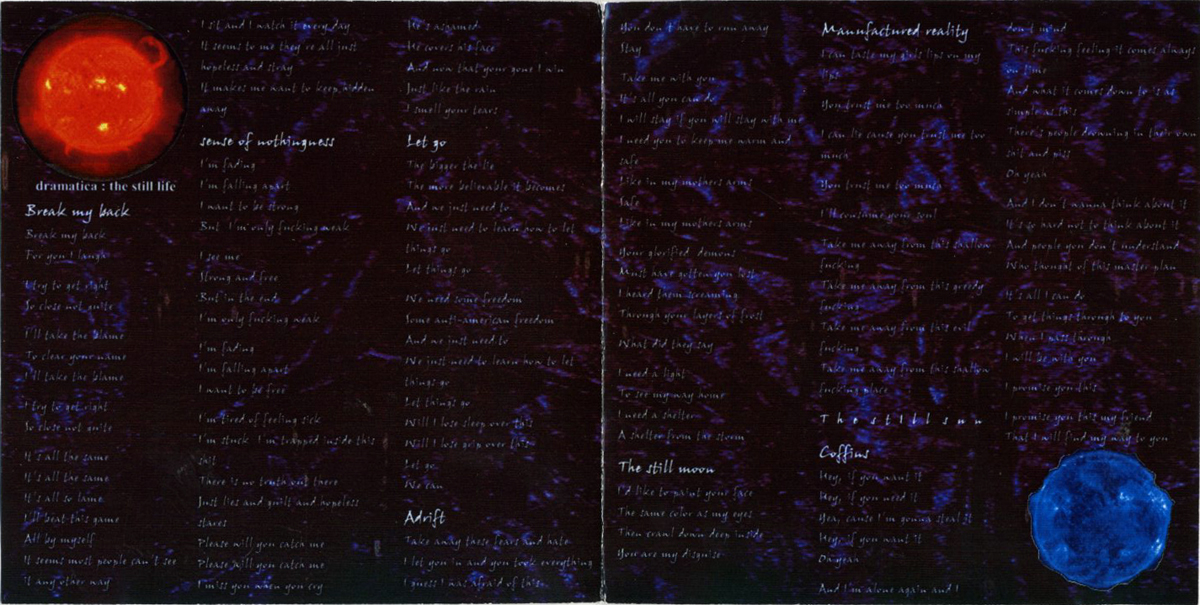 dramatica : the still life
Break my back
Break my back
For you I laugh
I try to get right
So close not quite
I'll take the blame
To clear your name
I'll take the blame
I try to get right
So close not quite
It's all the same
It's all the same
It's all so lame
I'll beat this game
All by myself
It seems most people can't see
it any other way
I sit and I watch it every day
It seems to me they're all just
hopeless and stray
It makes me want to keep hidden
away
sense of nothingness
I'm fading
I'm falling apart
I want to be strong
But I'm only fucking weak
I see me
Strong and free
But in the end
I'm only fucking weak
I'm fading
I'm falling apart
I want to be free
I'm tired of feeling sick
I'm stuck I'm trapped inside this
shit
There is no truth out there
Just lies and guilt and hopeless
stares
Please will you catch me
Please will you catch me
I miss you when you cry
He's ashamed
He covers his face
And now that your gone I win
Just like the rain
I smell your tears
Let go
The bigger the lie
The more believable it becomes
And we just need to
We just need to learn how to let
things go
Let things go
We need some freedom
Some anti-american freedom
And we just need to
We just need to learn how to let
things go
Let things go
Will I lose sleep over this
Will I lose grip over this
Let go
We can
Adrift
Take away these fears and hate
I let you in and you took everything
I guess I was afraid of this
You don't have to run away
Stay
Take me with you
It's all you can do
I will stay if you will stay with me
I need you to keep me warm and
safe
Like in my mothers arms
Safe
Like in my mothers arms
Your glorified demons
Must have gotten you lost
I heard them screaming
Through your layers of frost
What did they say
I need a light
To see my way home
I need a shelter
A shelter from the storm
The still moon
I'd like to paint your face
The same color as my eyes
Then crawl down deep inside
You are my disguise
Manufactured reality
I can taste my gods lips on my
lips
You trust me too much
I can lie cause you trust me too
much
You trust me too much
I'll consume your soul
Take me away from this shallow
fucking
Take me away from this greedy
fucking
Take me away from this evil
fucking
Take me away from this shallow
fucking place
T h e s t I l l s u n
Coffins
Hey, if you want it
Hey, if you need it
Yea, cause I'm gonna steal it
Hey, if you want it
Oh yeah
And I'm alone again and I
don't mind
This fucking feeling it comes always
on time
And what it comes down to is as
simple as this
There's people drowning in their own
shit and piss
Oh yeah
And I don't wanna think about it
It's so hard not to think about it
And people you don't understand
Who thought of this master plan
It's all I can do
To get things through to you
When I pass through
I will be with you
I promise you this
I promise you this my friend
That I will find my way to you